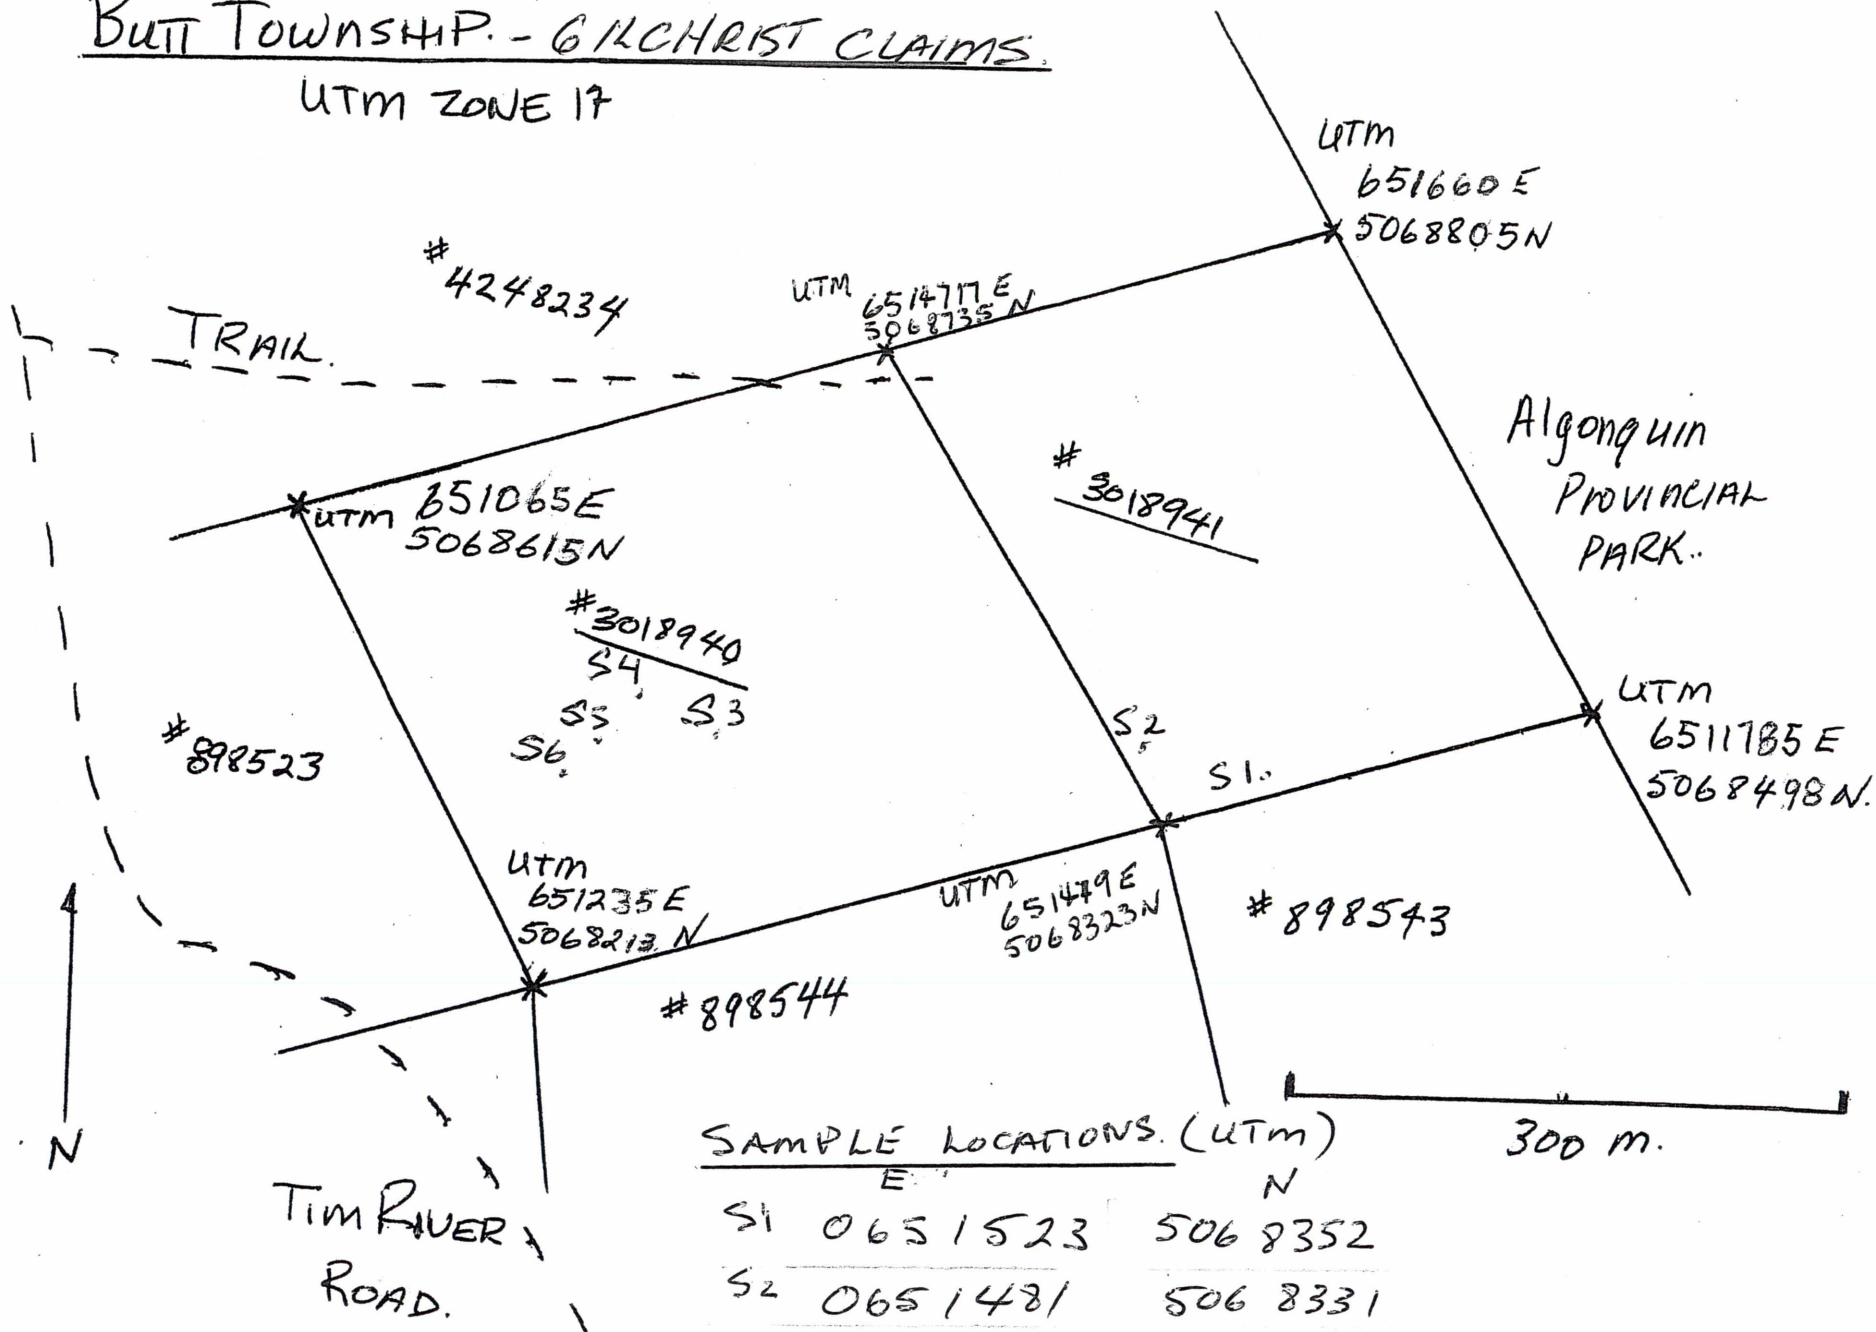 BUTT TOWNSHIP. - GILCHRIST CLAIMS.
UTM ZONE 17
UTM
651660 E
5068805 N
# 4248234
UTM
6514717 E
5068735 N
TRAIL.
Algonquin
PROVINCIAL
PARK..
# 3018941
UTM 651065 E
5068615 N
# 3018940
S4
S5
S3
S6
S2
S1.
# 898523
UTM
6511785 E
5068498 N.
UTM
651235 E
5068213 N
UTM 651479 E
5068323 N
# 898543
# 898544
N
300 m.
SAMPLE LOCATIONS. (UTM)
E N
S1 0651523 5068352
S2 0651481 5068331
TIM RIVER
ROAD.